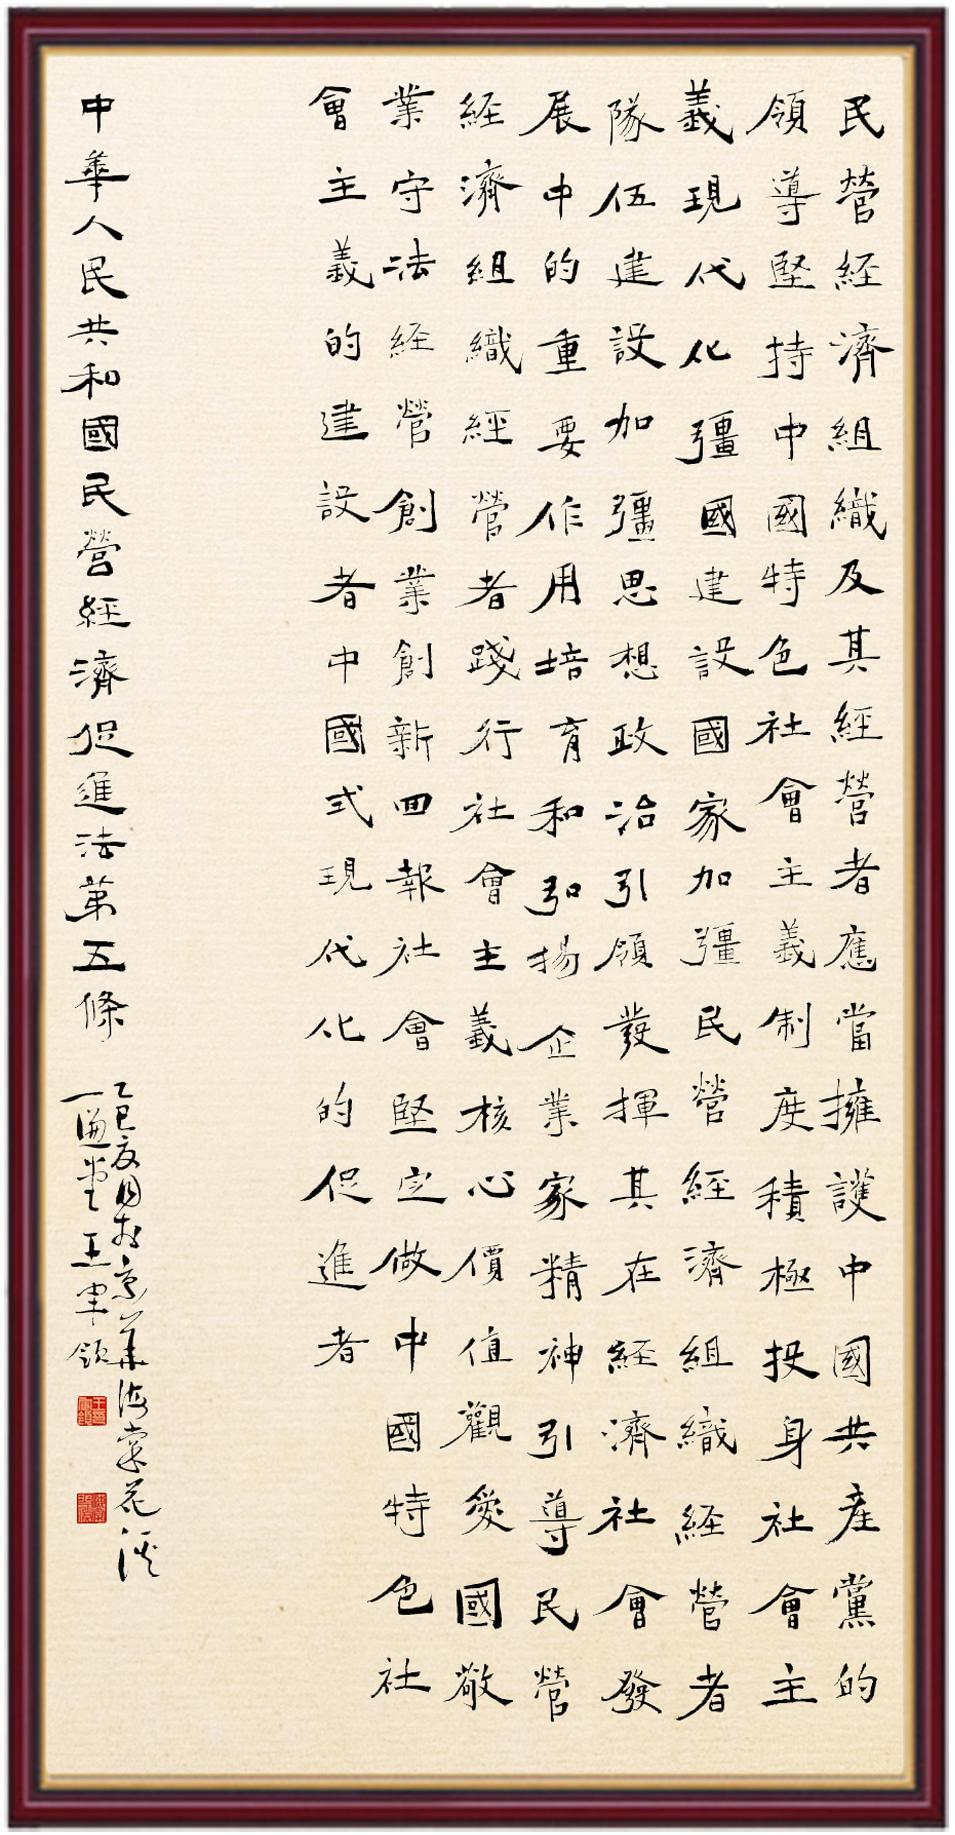 民營經濟組織及其經營者應當擁護中國共產黨的
領導堅持中國特色社會主義制度積極投身社會主
義現代化彊國建設國家加彊民營經濟組織經營者
隊伍建設加彊思想政治引領發揮其在經濟社會發
展中的重要作用培育和弘揚企業家精神引導民營
經濟組織經營者踐行社會主義核心價值觀愛國敬
業守法經營創業創新回報社會堅定做中國特色社
會主義的建設者中國式現代化的促進者
中華人民共和國民營經濟促進法第五條
乙巳夏月於京華海棠花溪
一通堂王軍領